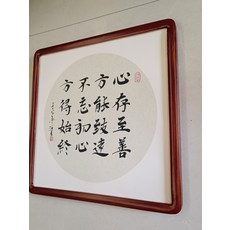 心存至善
方能致遠
不忘初心
方得始終